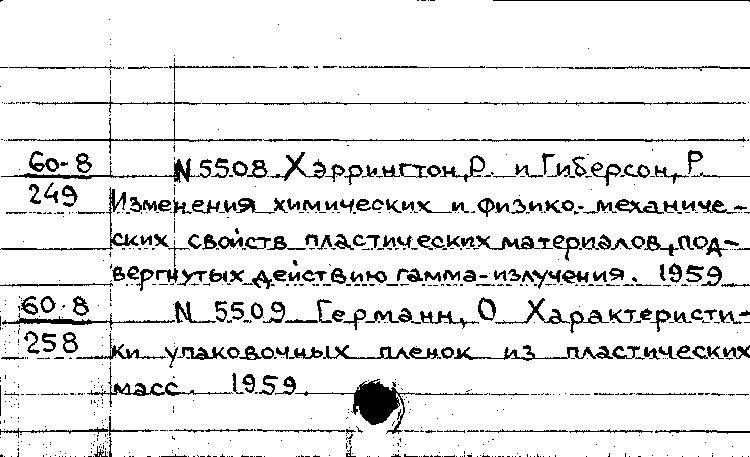 60-8 N 5508. Хэррингтон, Р. и Гиберсон, Р.
249 Изменения химических и физико-механиче-
ских свойств пластических материалов, под-
вергнутых действию гамма-излучения. 1959
60-8 N 5509 Германн, О Характеристи-
258 ки упаковочных пленок из пластических
масс. 1959.